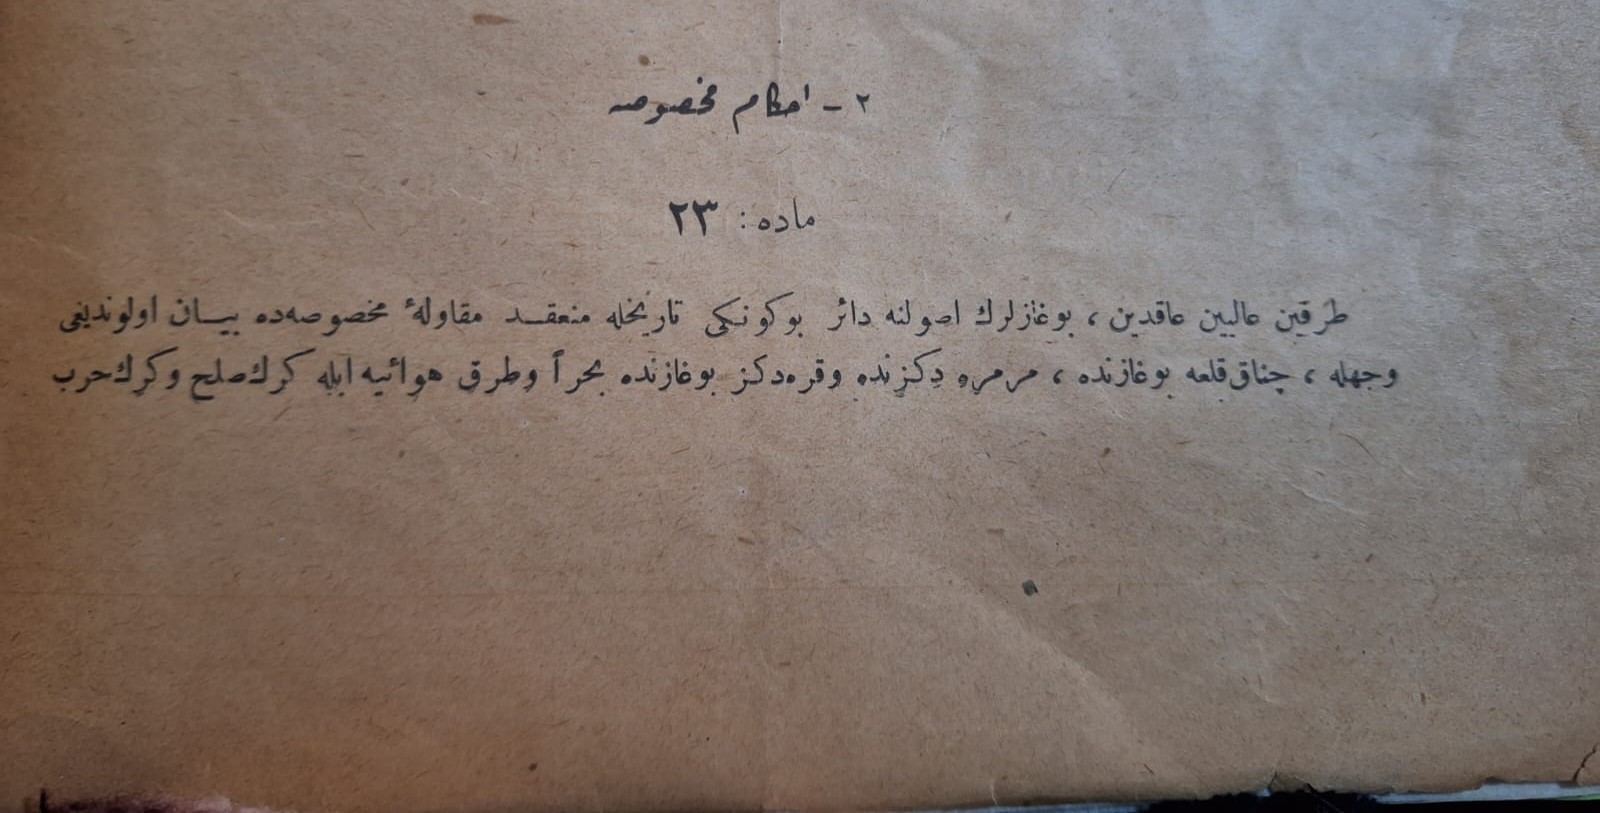 ٢ - احكام مخصوصه
ماده : ٢٣
طرفين عاليين عاقدين ، بوغازلرك اصولنه دائر بوكونكى تاريخله منعقد مقاولهٔ مخصوصه‌ده بيان اولونديغى
وجهله ، چناق‌قلعه بوغازنده ، مرمره دكزنده وقره‌دكز بوغازنده بحراً وطرق هوائيه ايله كرك‌صلح وكرك‌حرب